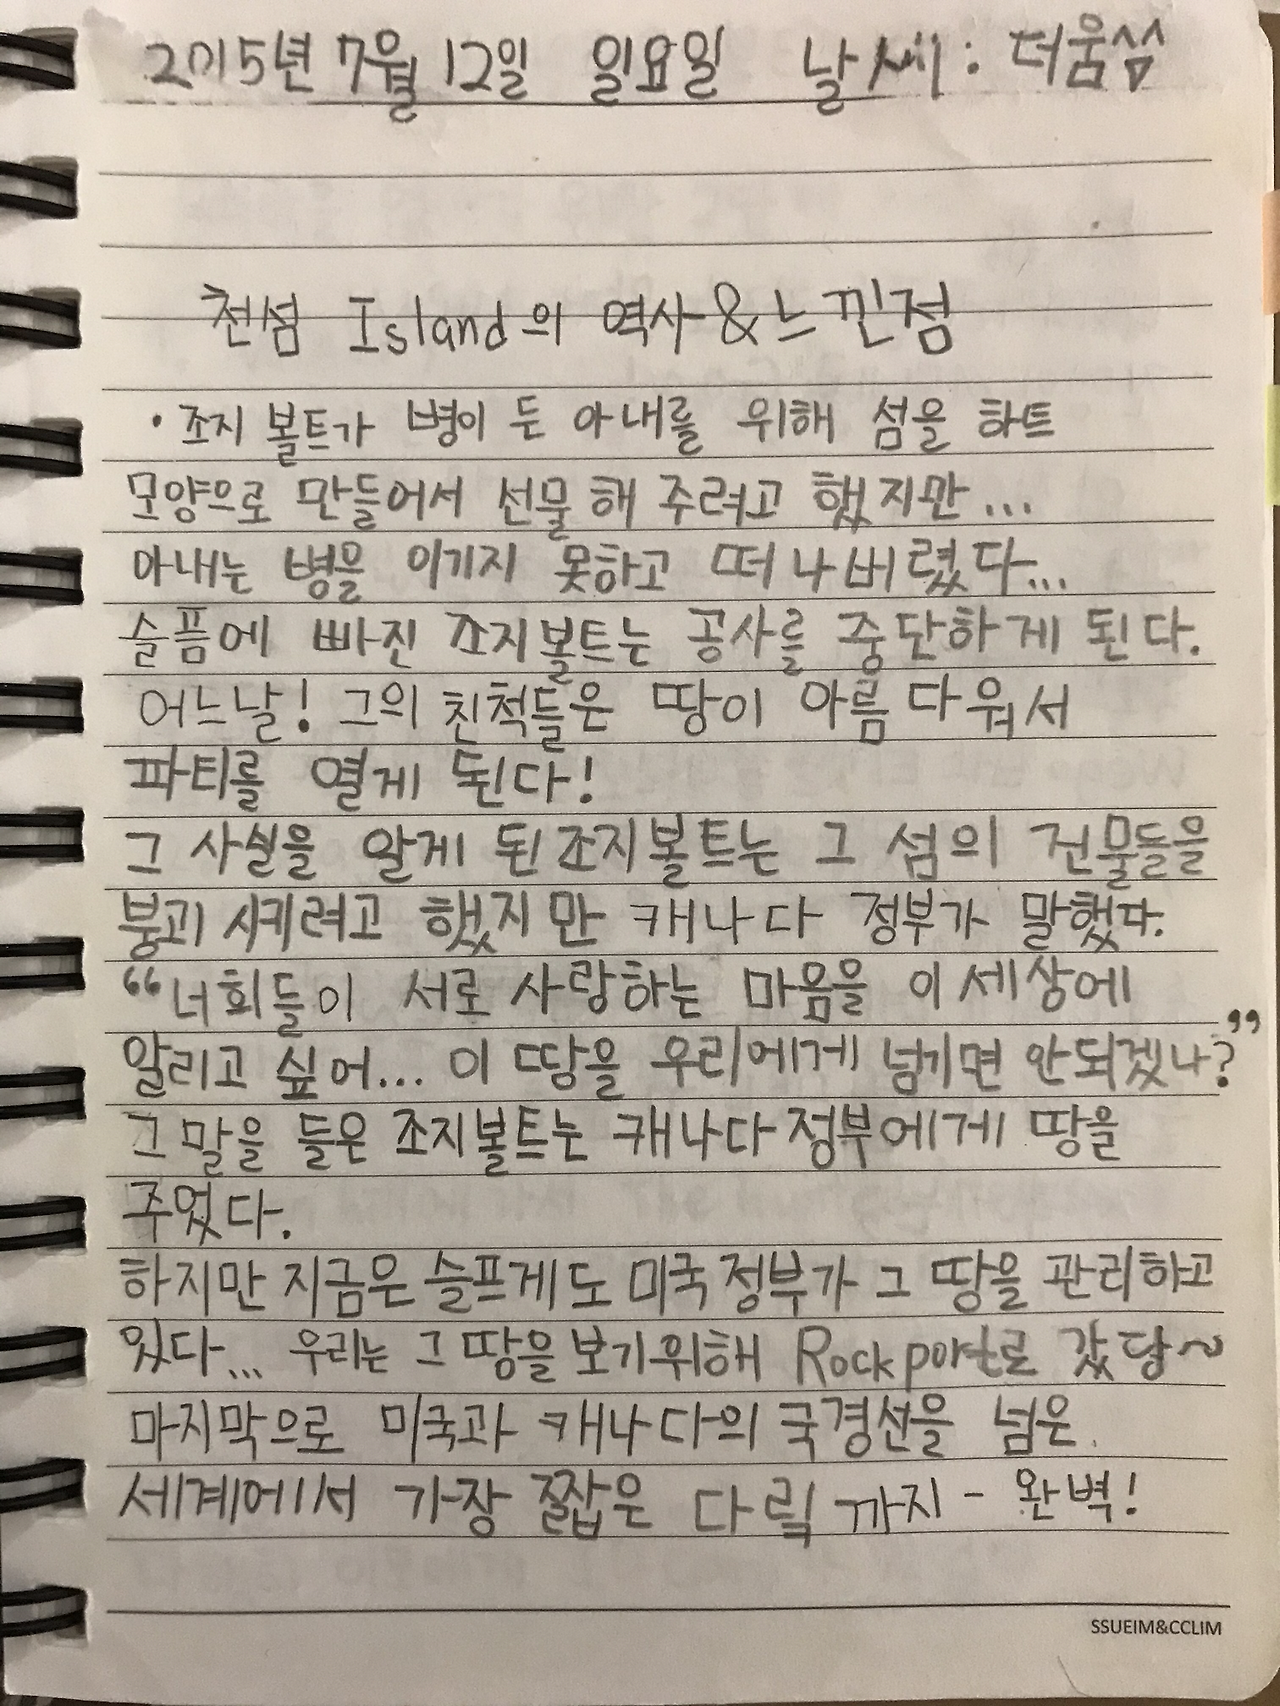 2015년 7월 12일 일요일 날씨: 더움^^
천섬 Island의 역사&느낀점
· 조지 볼트가 병이 든 아내를 위해 섬을 하트
모양으로 만들어서 선물 해 주려고 했지만...
아내는 병을 이기지 못하고 떠나버렸다...
슬픔에 빠진 조지볼트는 공사를 중단하게 된다.
어느날! 그의 친척들은 땅이 아름다워서
파티를 열게 된다!
그 사실을 알게 된 조지볼트는 그 섬의 건물들을
붕괴 시키려고 했지만 캐나다 정부가 말했다.
“너희들이 서로 사랑하는 마음을 이 세상에
알리고 싶어... 이 땅을 우리에게 넘기면 안되겠나?”
그 말을 들은 조지볼트는 캐나다정부에게 땅을
주었다.
하지만 지금은 슬프게도 미국정부가 그 땅을 관리하고
있다... 우리는 그 땅을 보기위해 Rockport로 갔당~
마지막으로 미국과 캐나다의 국경선을 넘은
세계에서 가장 짧은 다릭까지 - 완벽!
SSUEIM&CCLIM